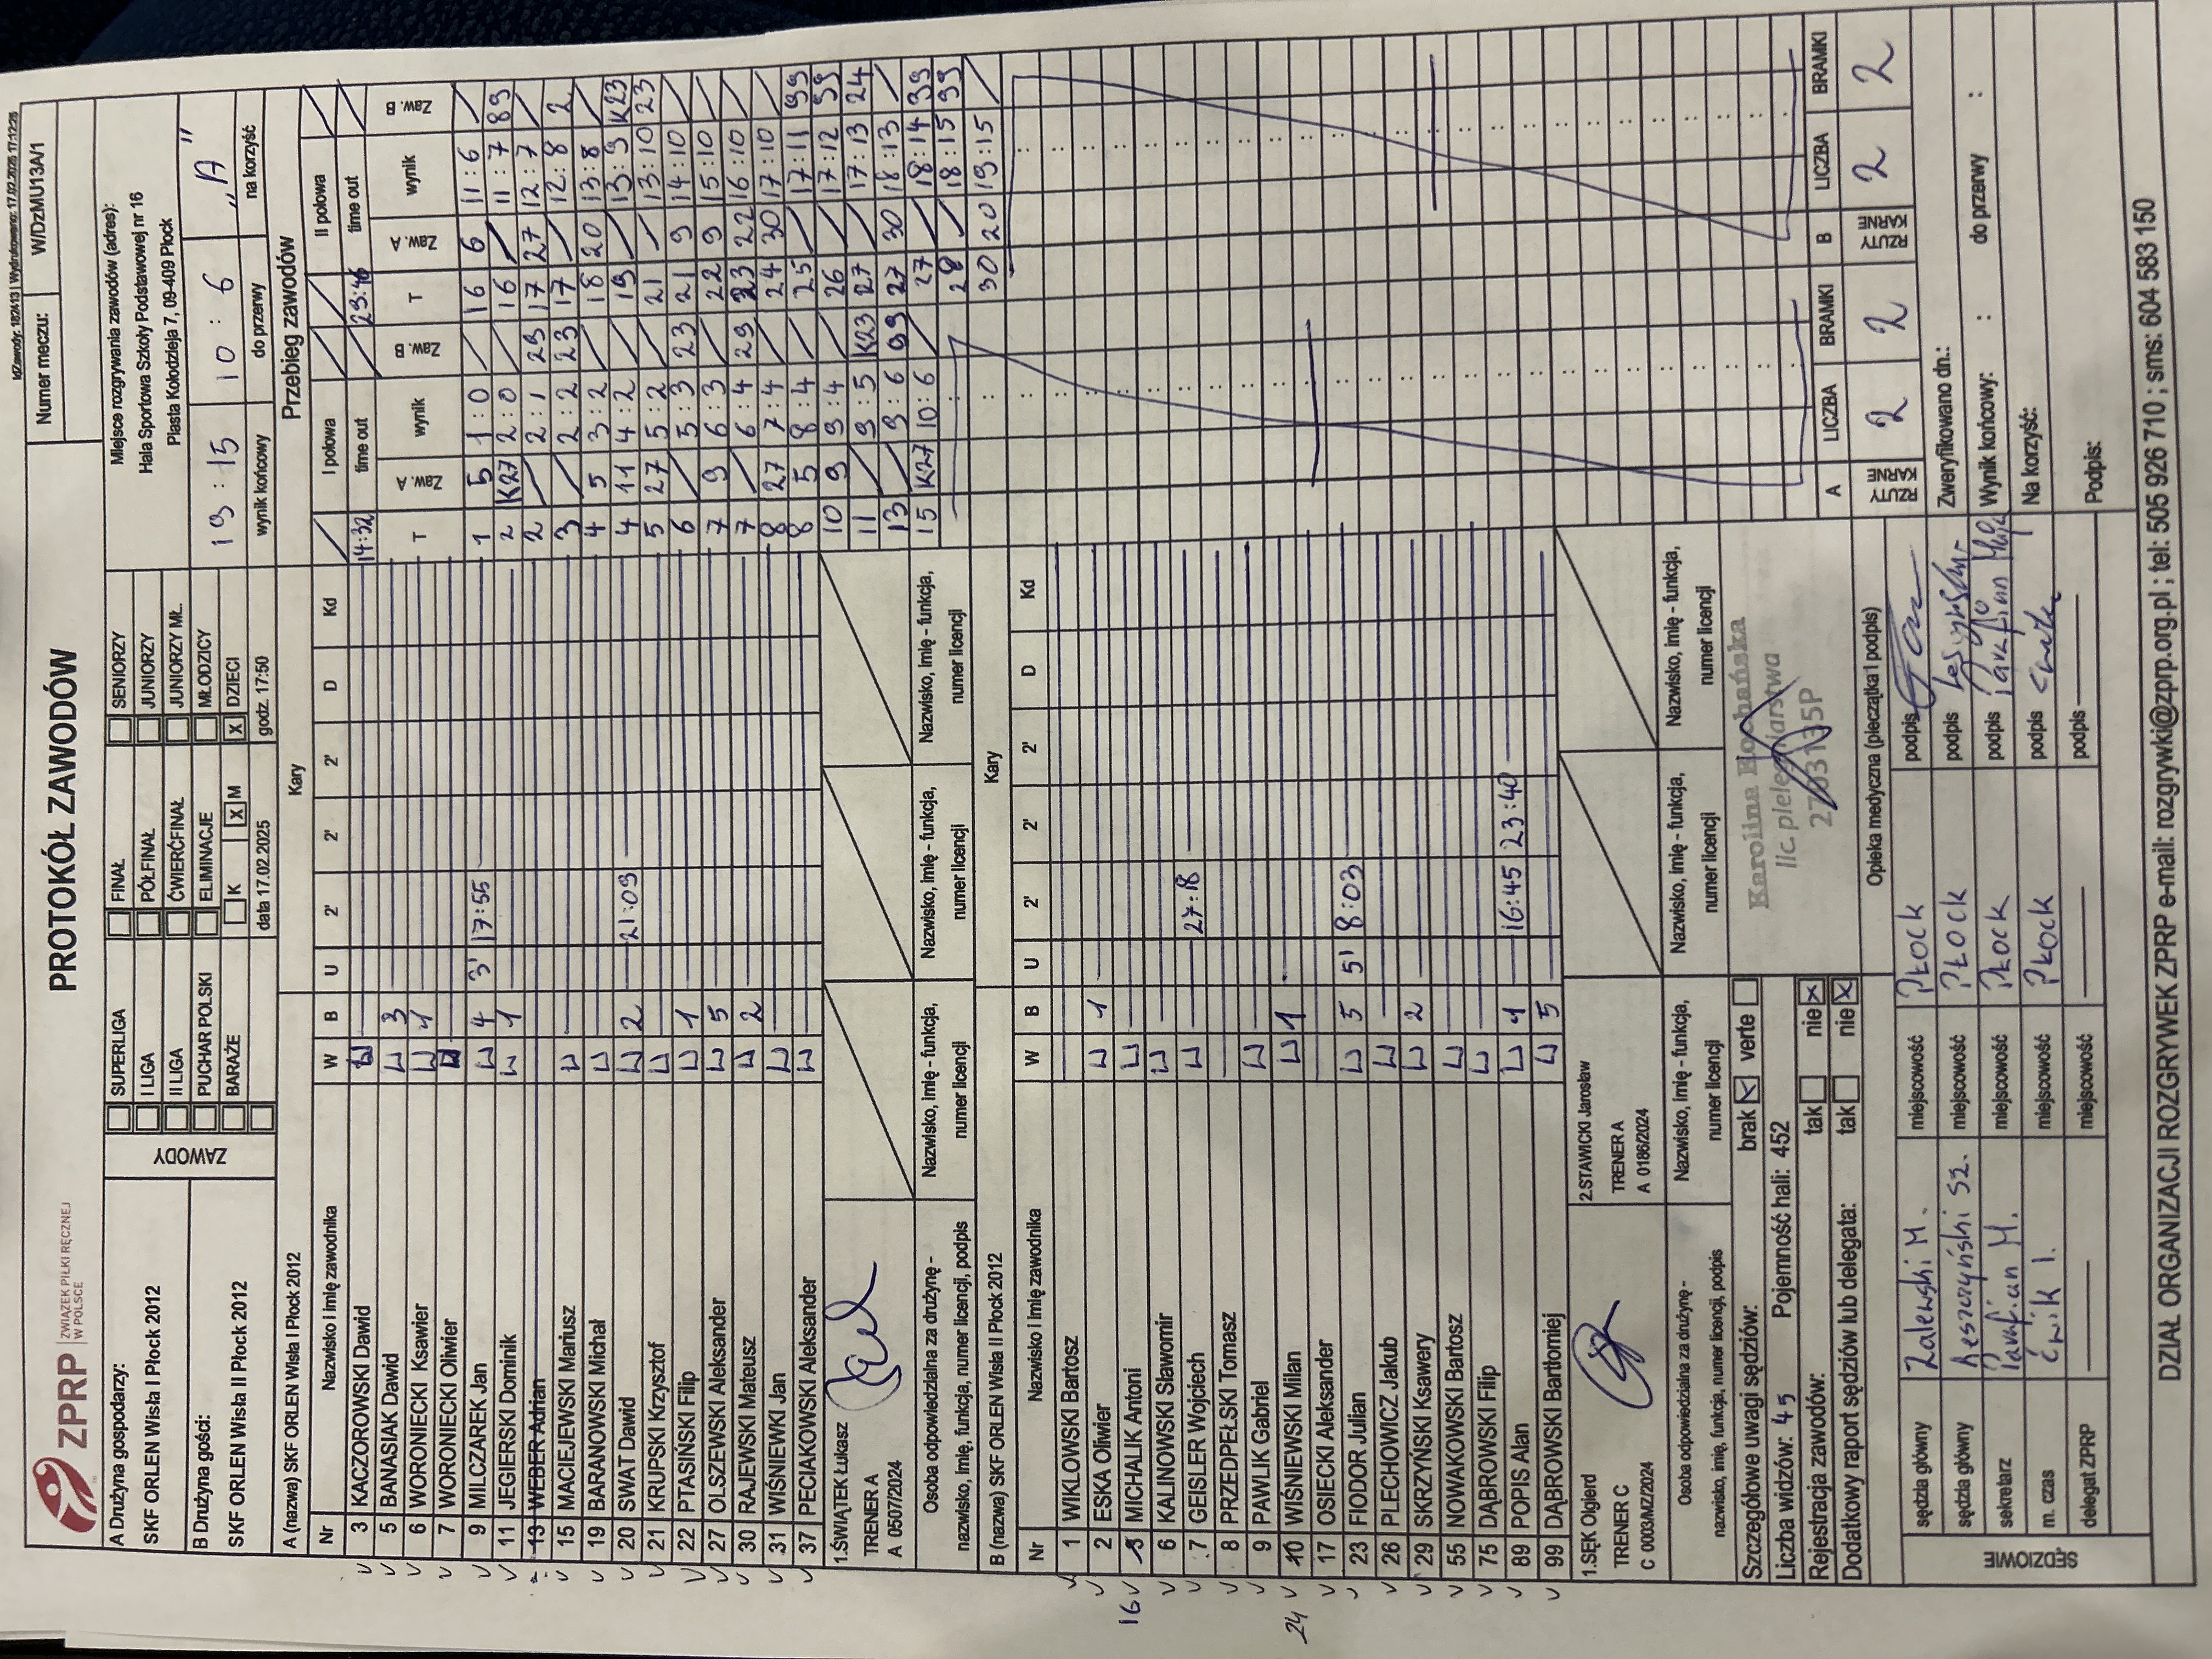 IdZawody: 182413 | Wydrukowano: 17.02.2025 17:12:25
ZPRP
ZWIĄZEK PIŁKI RĘCZNEJ
W POLSCE
PROTOKÓŁ ZAWODÓW
Numer meczu: W/DzMU13A/1
A Drużyna gospodarzy:
SKF ORLEN Wisła I Płock 2012
B Drużyna gości:
SKF ORLEN Wisła II Płock 2012
ZAWODY
SUPERLIGA
I LIGA
II LIGA
PUCHAR POLSKI
BARAŻE
FINAŁ
PÓŁFINAŁ
ĆWIERĆFINAŁ
ELIMINACJE
K x M
SENIORZY
JUNIORZY
JUNIORZY MŁ.
MŁODZICY
x DZIECI
data 17.02.2025 godz. 17:50
Miejsce rozgrywania zawodów (adres):
Hala Sportowa Szkoły Podstawowej nr 16
Piasta Kołodzieja 7, 09-409 Płock
19 : 15 10 : 6 "A"
wynik końcowy do przerwy na korzyść
A (nazwa) SKF ORLEN Wisła I Płock 2012 Kary
Nr Nazwisko i imię zawodnika W B U 2' 2' 2' D Kd
3 KACZOROWSKI Dawid
5 BANASIAK Dawid W 3
6 WORONIECKI Ksawier W 1
7 WORONIECKI Oliwier
9 MILCZAREK Jan W 4 3' 17:55
11 JEGIERSKI Dominik W 1
13 WEBER Adrian
15 MACIEJEWSKI Mariusz W
19 BARANOWSKI Michał W
20 SWAT Dawid W 2 21:09
21 KRUPSKI Krzysztof W
22 PTASIŃSKI Filip W 1
27 OLSZEWSKI Aleksander W 5
30 RAJEWSKI Mateusz W 2
31 WIŚNIEWKI Jan W
37 PECIAKOWSKI Aleksander W
1.ŚWIĄTEK Łukasz
TRENER A
A 0507/2024
Osoba odpowiedzialna za drużynę -
nazwisko, imię, funkcja, numer licencji, podpis
Nazwisko, imię - funkcja,
numer licencji
Nazwisko, imię - funkcja,
numer licencji
Nazwisko, imię - funkcja,
numer licencji
B (nazwa) SKF ORLEN Wisła II Płock 2012 Kary
Nr Nazwisko i imię zawodnika W B U 2' 2' 2' D Kd
1 WIKLOWSKI Bartosz
2 ESKA Oliwier W 1
16 5 MICHALIK Antoni W
6 KALINOWSKI Sławomir W
7 GEISLER Wojciech W 27:18
8 PRZEDPEŁSKI Tomasz
9 PAWLIK Gabriel W
24 10 WIŚNIEWSKI Milan W 1
17 OSIECKI Aleksander
23 FIODOR Julian W 5 5' 8:03
26 PLECHOWICZ Jakub W
29 SKRZYŃSKI Ksawery W 2
55 NOWAKOWSKI Bartosz W
75 DĄBROWSKI Filip W
89 POPIS Alan W 1 16:45 23:40
99 DĄBROWSKI Bartłomiej W 5
1.SĘK Olgierd
TRENER C
C 0003/MZ/2024
2.STAWICKI Jarosław
TRENER A
A 0186/2024
Osoba odpowiedzialna za drużynę -
nazwisko, imię, funkcja, numer licencji, podpis
Nazwisko, imię - funkcja,
numer licencji
Nazwisko, imię - funkcja,
numer licencji
Nazwisko, imię - funkcja,
numer licencji
Przebieg zawodów
I połowa
time out
14:32
T Zaw. A wynik Zaw. B
1 5 1 : 0
2 K27 2 : 0
2 2 : 1 29
3 2 : 2 23
4 5 3 : 2
4 11 4 : 2
5 27 5 : 2
6 5 : 3 23
7 9 6 : 3
7 6 : 4 29
8 27 7 : 4
8 5 8 : 4
10 9 9 : 4
11 9 : 5 K23
13 9 : 6 99
15 K27 10 : 6
II połowa
time out
29:46
T Zaw. A wynik Zaw. B
16 6 11 : 6
16 11 : 7 89
17 27 12 : 7
17 12 : 8 2
18 20 13 : 8
19 13 : 9 K23
21 13 : 10 23
21 9 14 : 10
22 9 15 : 10
23 22 16 : 10
24 30 17 : 10
25 17 : 11 99
26 17 : 12 99
27 17 : 13 24
27 30 18 : 13
27 18 : 14 99
28 18 : 15 99
30 20 19 : 15
A RZUTY KARNE LICZBA 2 BRAMKI 2
B RZUTY KARNE LICZBA 2 BRAMKI 2
Szczegółowe uwagi sędziów: brak x verte
Liczba widzów: 45 Pojemność hali: 452
Rejestracja zawodów: tak nie x
Dodatkowy raport sędziów lub delegata: tak nie x
Karolina
lic. pielęgniarstwa
2703135P
Opieka medyczna (pieczątka i podpis)
SĘDZIOWIE
sędzia główny Zalewski M. miejscowość Płock podpis
sędzia główny Leszczyński Sz. miejscowość Płock podpis
sekretarz Parafian M. miejscowość Płock podpis
m. czas Ćwik I. miejscowość Płock podpis
delegat ZPRP miejscowość podpis
Zweryfikowano dn.:
Wynik końcowy: : do przerwy :
Na korzyść:
Podpis:
DZIAŁ ORGANIZACJI ROZGRYWEK ZPRP e-mail: rozgrywki@zprp.org.pl ; tel: 505 926 710 ; sms: 604 583 150